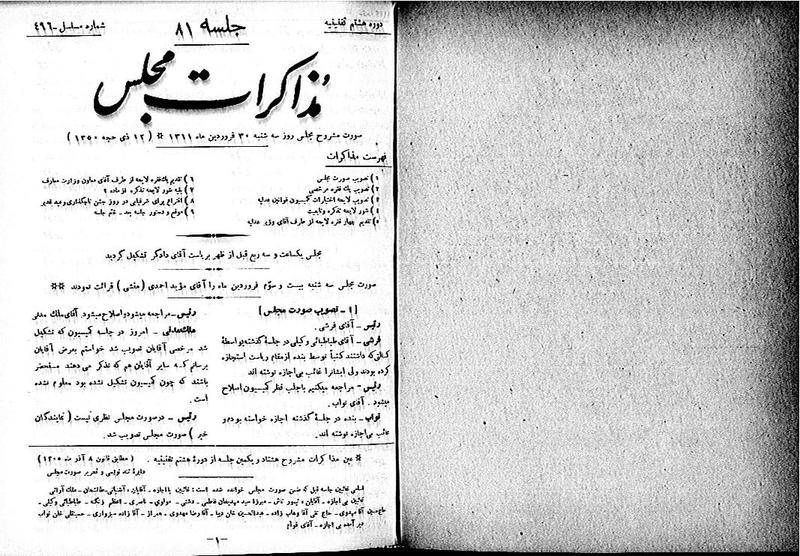 دوره هشتم تقنینیه
جلسه ۸۱
شماره مسلسل - ۴۹۶
مذاکرات مجلس
صورت مشروح مجلس روز سه شنبه ۳۰ فروردین ماه ۱۳۱۱ * (۱۲ ذی حجه ۱۳۵۰)
فهرست مذاکرات
۱) تصویب صورت مجلس
۲) تصویب یك فقره مرخصی
۳) تصویب لایحه اختیارات کمیسیون قوانین عدلیه
۴) شور لایحه تذکره وتابعیت
۵) تقدیم چهار فقره لایحه از طرف آقای وزیر عدلیه
۶) تقدیم یك فقره لایحه از طرف آقای معاون وزارت معارف
۷) بقیه شور لایحه تذکره از ماده ۲
۸) اقتراع برای شرفیابی در روز جشن تاجگذاری وعید غدیر
۹) موقع و دستور جلسه بعد - ختم جلسه
مجلس یکساعت و سه ربع قبل از ظهر بریاست آقای دادگر تشکیل گردید
صورت مجلس سه شنبه بیست و سوم فروردین ماه را آقای مؤید احمدی (منشی) قرائت نمودند **
[۱ - تصویب صورت مجلس]
رئیس - آقای فرشی.
فرشی - آقای طباطبائی وکیلی در جلسهٔ گذشته بواسطهٔ
کسالتی که داشتند کتباً توسط بنده از مقام ریاست استجازه
کرده بودند ولی ایشانرا غائب بی اجازه نوشته اند
رئیس - مراجعه میکنیم باجلب نظر کمیسیون اصلاح
میشود. آقای نواب.
نواب - بنده در جلسهٔ گذشته اجازه خواسته بودم و
غائب بی اجازه نوشته اند.
رئیس - مراجعه میشود واصلاح میشود. آقای ملك مدنی
ملك مدنی - امروز در جلسه کمیسیون که تشکیل
شد مرخصی آقایان تصویب شد خواستم بعرض آقایان
برسانم که سایر آقایان هم که تذکر می دهند مستحضر
باشند که چون کمیسیون تشکیل نشده بود معلوم نشده
است.
رئیس - در صورت مجلس نظری نیست (نمایندگان
خیر) صورت مجلس تصویب شد.
* عین مذاکرات مشروح هشتاد و یکمین جلسه از دورهٔ هشتم تقنینیه. (مطابق قانون ۸ آذر ماه ۱۳۰۵)
دایرهٔ تند نویسی و تحریر صورت مجلس
اسامی غائبین جلسه قبل که ضمن صورت مجلس خوانده شده است: غائبین با اجازه - آقایان: آشتیانی - طالشخان - ملك آرائی
غائبین بی اجازه - آقایان: تیمور تاش - میرزا سید مهدیخان فاطمی - دشتی - مولوی - ناصری - اعظم زنگنه - طباطبائی وکیلی -
حاج حسین آقا مهدوی - حاج تقی آقا وهاب زاده - عبدالحسین خان دیبا - آقا رضا مهدوی - هزار - آقا زاده سبزواری - حسینقلی خان نواب
دیر آمده بی اجازه - آقای قوام
-۱-